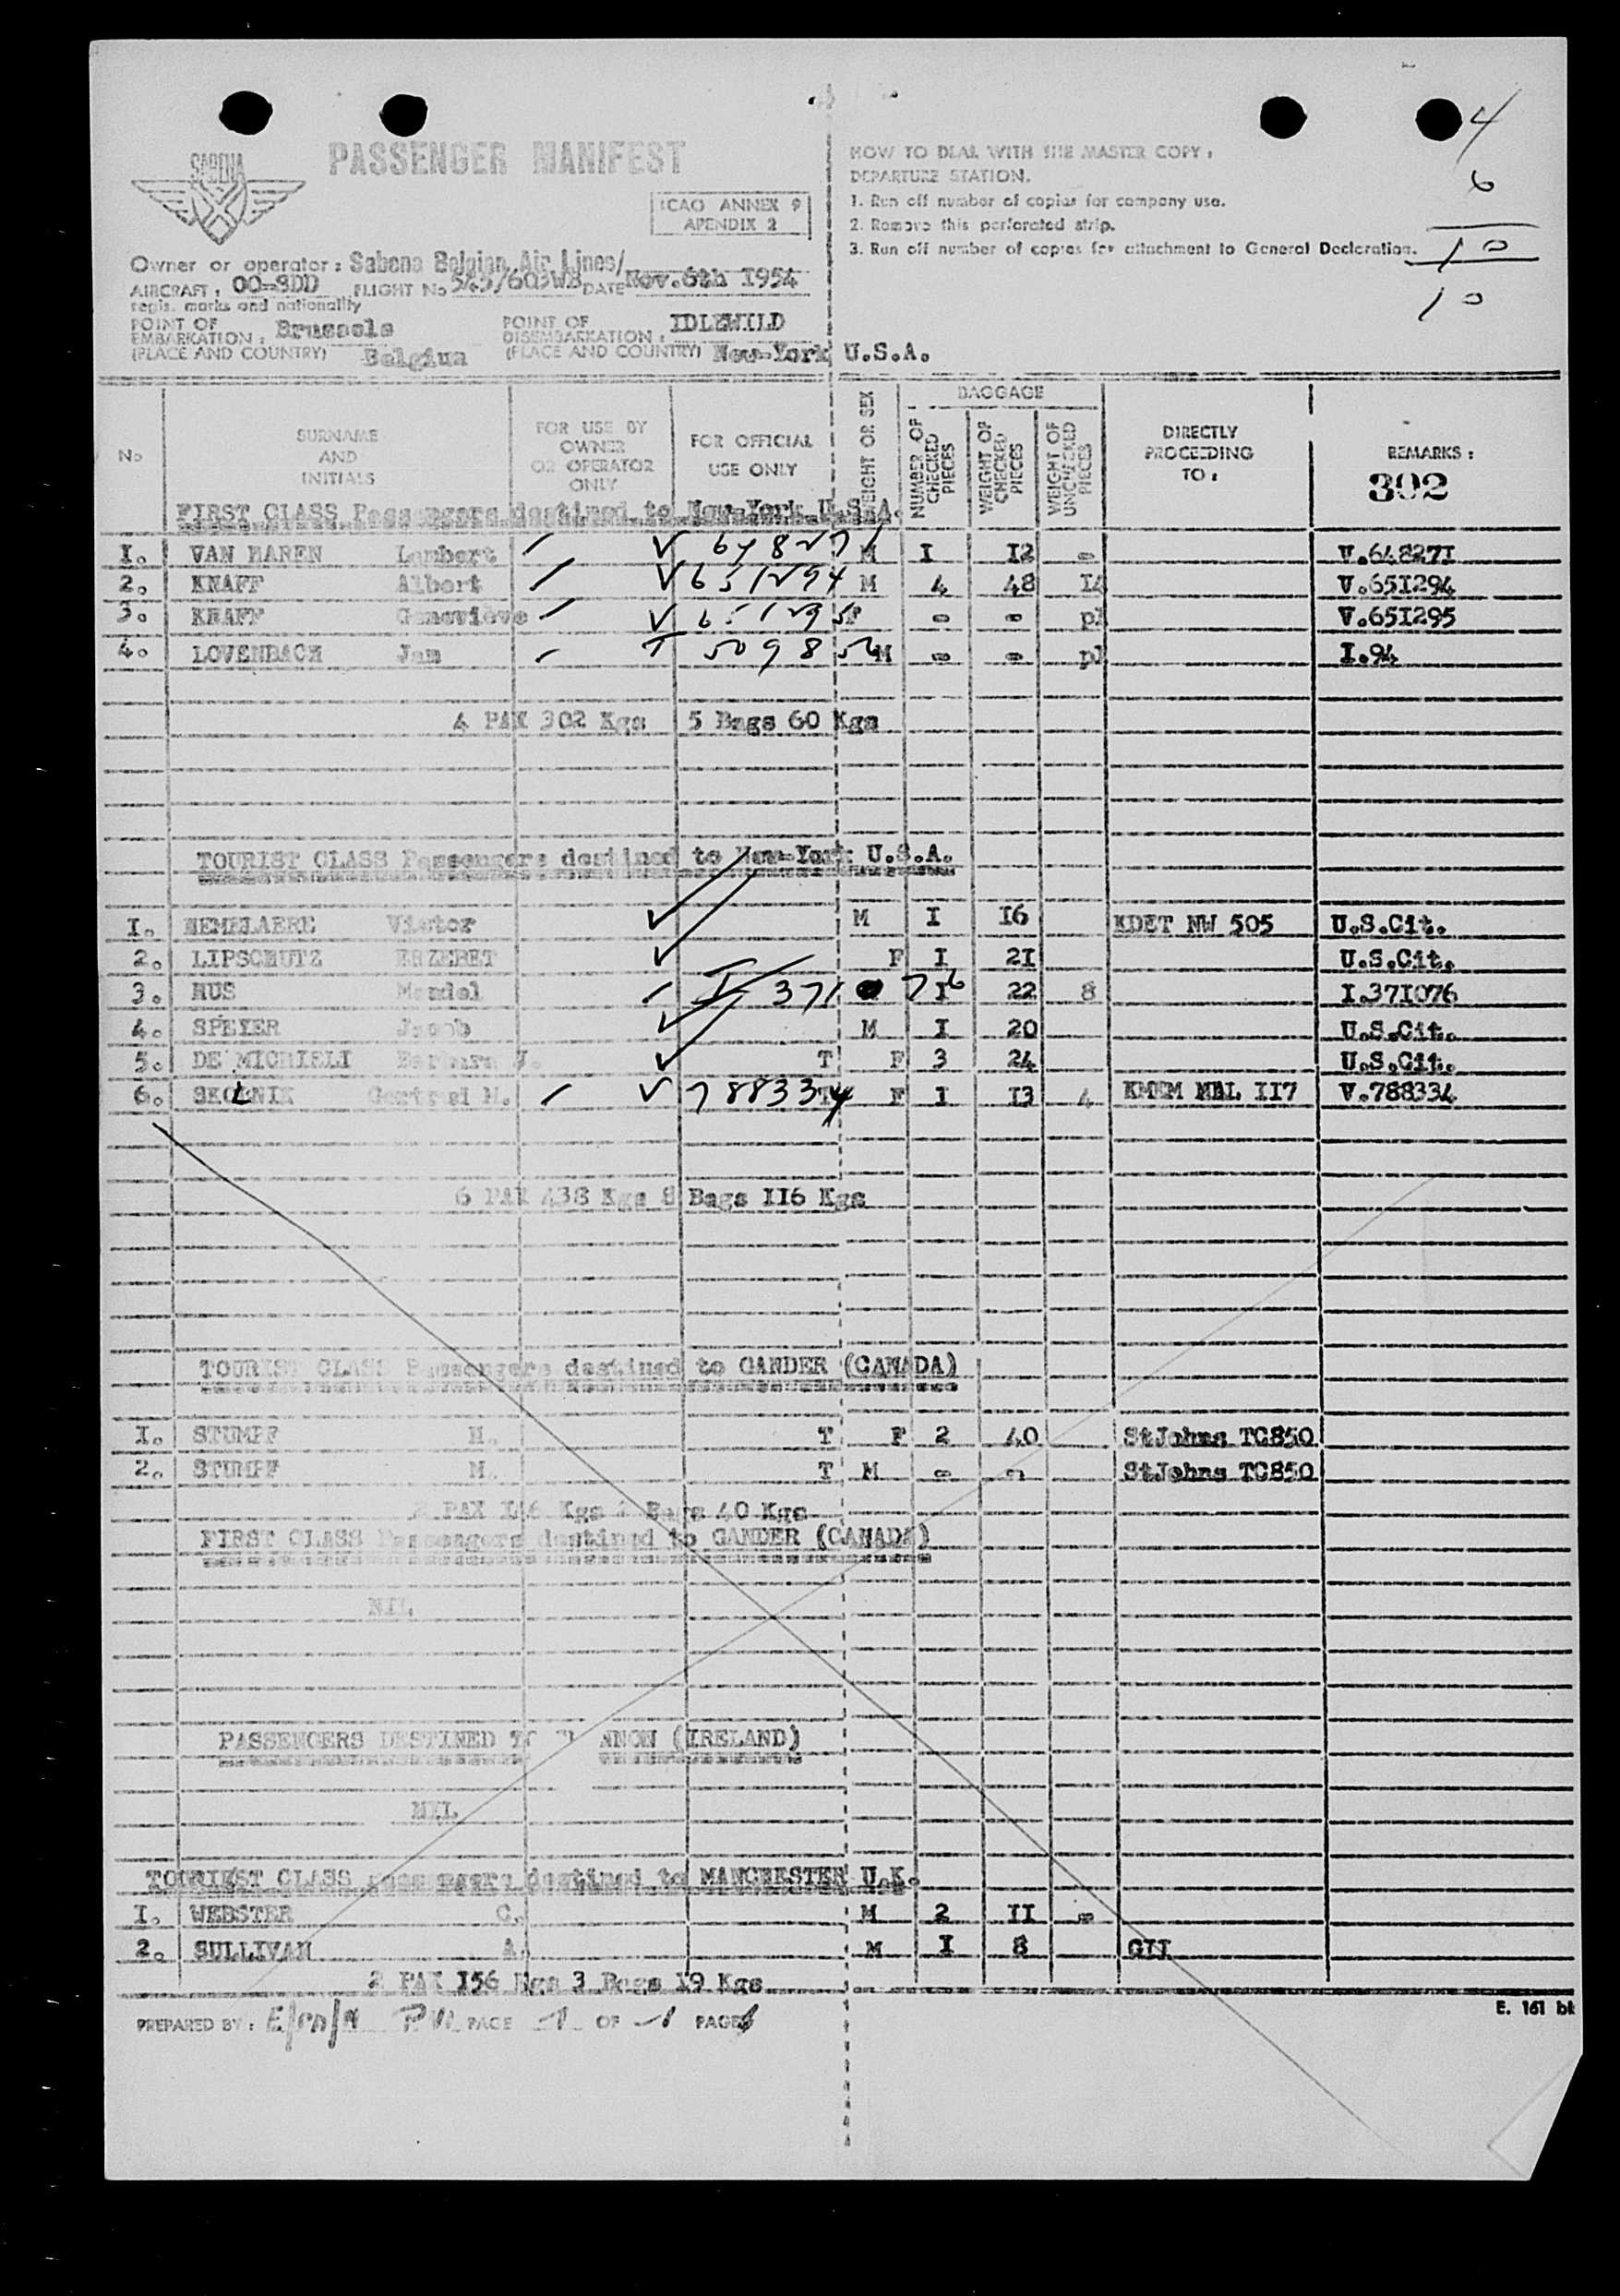 SABENA
PASSENGER MANIFEST
ICAO ANNEX 9
APENDIX 2
HOW TO DEAL WITH THE MASTER COPY :
DEPARTURE STATION.
1. Run off number of copies for company use.
2. Remove this perforated strip.
3. Run off number of copies for attachment to General Declaration.
4
6
10
10
Owner or operator : Sabena Belgian Air Lines/
AIRCRAFT : OO-SDD FLIGHT No 545/603WB DATE Nov.6th I954
regis. marks and nationality
POINT OF EMBARKATION : Brussels
(PLACE AND COUNTRY) Belgium
POINT OF DISEMBARKATION : IDLEWILD
(PLACE AND COUNTRY) New-York U.S.A.
No
SURNAME AND INITIALS
FOR USE BY OWNER OR OPERATOR ONLY
FOR OFFICIAL USE ONLY
WEIGHT OR SEX
BAGGAGE
NUMBER OF CHECKED PIECES
WEIGHT OF CHECKED PIECES
WEIGHT OF UNCHECKED PIECES
DIRECTLY PROCEEDING TO :
REMARKS :
302
FIRST CLASS Passengers destined to New-York U.S.A.
I. VAN MAREN Lambert V 648271 M I I2 - V.64827I
2. KNAFF Albert V 651294 M 4 48 I4 V.65I294
3. KNAFF Geneviève V 651295 F - - pl V.65I295
4. LOVENBACH Jam I 509856 M - - pl I.94
4 PAX 302 Kgs 5 Bags 60 Kgs
TOURIST CLASS Passengers destined to New-York U.S.A.
I. Victor M I I6 KDET NW 505 U.S.Cit.
2. LIPSCHUTZ ERZEBET F I 2I U.S.Cit.
3. RUS Mendel I 371076 I 22 8 I.37I076
4. SPEYER Jacob M I 20 U.S.Cit.
5. DE MICHIELI Barbara J. T F 3 24 U.S.Cit.
6. SKOLNIK M. V 788334 T F I I3 4 KMEM II7 V.788334
6 PAX 438 Kgs 8 Bags II6 Kgs
TOURIST CLASS Passengers destined to GANDER (CANADA)
I. STUMPF H. T F 2 40 StJohns TC850
2. STUMPF M. T M - - StJohns TC850
2 PAX I46 Kgs 2 Bags 40 Kgs
FIRST CLASS Passengers destined to GANDER (CANADA)
NIL
PASSENGERS DESTINED TO ANNON (IRELAND)
NIL
TOURIEST CLASS passengers destined to MANCHESTER U.K.
I. WEBSTER C. M 2 II -
2. SULLIVAN A. M I 8
2 PAX I56 Kgs 3 Bags I9 Kgs
PREPARED BY : PAGE 1 OF 1 PAGES
E. 161 bt